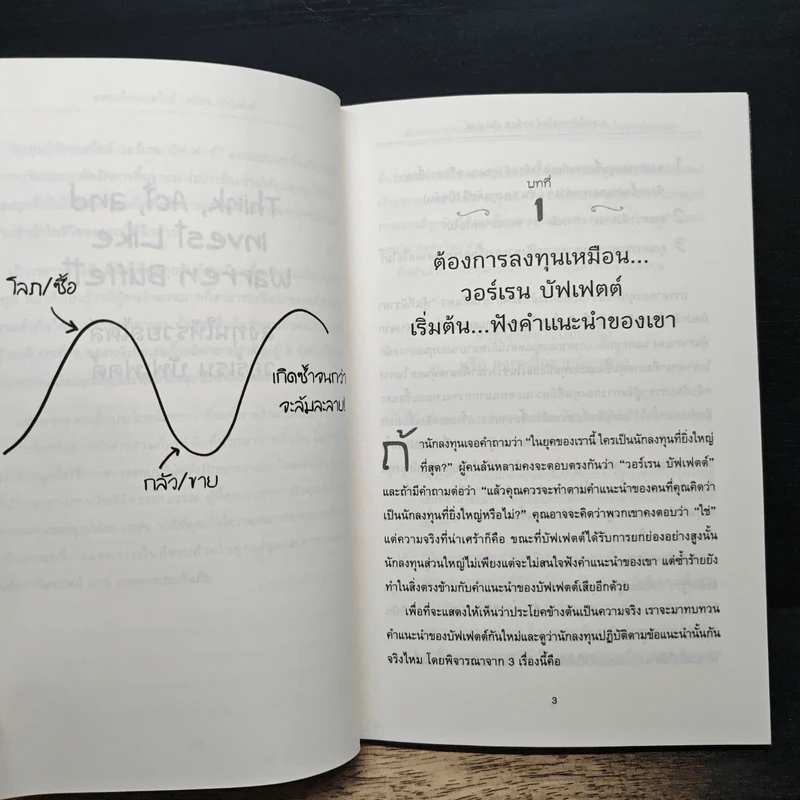 โลภ/ซื้อ
เกิดซ้ำจนกว่า
จะล้มละลาย!
กลัว/ขาย
บทที่
1
ต้องการลงทุนเหมือน...
วอร์เรน บัฟเฟตต์
เริ่มต้น...ฟังคำแนะนำของเขา
ถ้านักลงทุนเจอคำถามว่า “ในยุคของเรานี้ ใครเป็นนักลงทุนที่ยิ่งใหญ่
ที่สุด?” ผู้คนล้นหลามคงจะตอบตรงกันว่า “วอร์เรน บัฟเฟตต์”
และถ้ามีคำถามต่อว่า “แล้วคุณควรจะทำตามคำแนะนำของคนที่คุณคิดว่า
เป็นนักลงทุนที่ยิ่งใหญ่หรือไม่?” คุณอาจจะคิดว่าพวกเขาคงตอบว่า “ใช่”
แต่ความจริงที่น่าเศร้าก็คือ ขณะที่บัฟเฟตต์ได้รับการยกย่องอย่างสูงนั้น
นักลงทุนส่วนใหญ่ไม่เพียงแต่จะไม่สนใจฟังคำแนะนำของเขา แต่ซ้ำร้ายยัง
ทำในสิ่งตรงข้ามกับคำแนะนำของบัฟเฟตต์เสียอีกด้วย
เพื่อที่จะแสดงให้เห็นว่าประโยคข้างต้นเป็นความจริง เราจะมาทบทวน
คำแนะนำของบัฟเฟตต์กันใหม่และดูว่านักลงทุนปฏิบัติตามข้อแนะนำนั้นกัน
จริงไหม โดยพิจารณาจาก 3 เรื่องนี้คือ
3